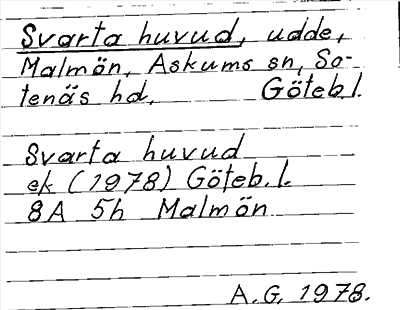 Svarta huvud, udde,
Malmön, Askums sn, So-
tenäs hd, Göteb.l.
Svarta huvud
ek (1978) Göteb.l.
8A 5h Malmön
A.G. 1978.